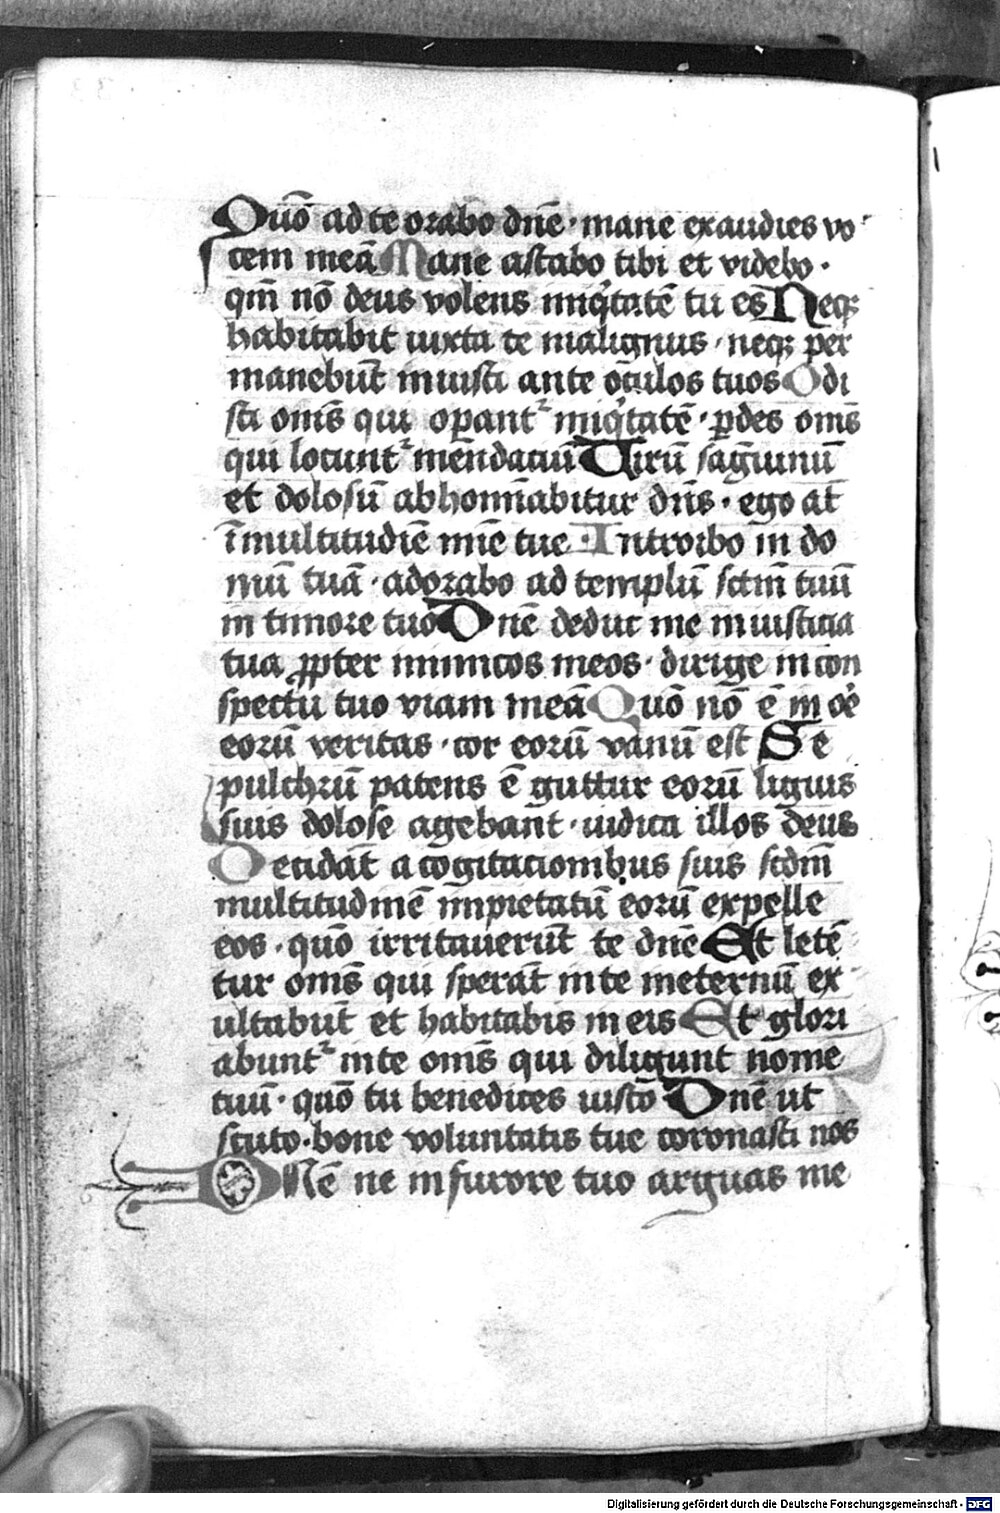 Quō ad te orabo dn̄e · mane exaudies vo
cem meā Mane astabo tibi et videbo ·
qm̄ nō deus volens iniq̇tatē tu es Neqꝫ
habitabit iuxta te malignus · neqꝫ per
manebūt iniusti ante oc̄ulos tuos Odi
sti om̄s qui op̄ant᷑ iniq̇tatē · ꝑdes om̄s
qui locunt᷑ mēndaciū Uirū sāguinū
et dolosū abhomīabitur dn̄s · ego at̄
ī multitudīe mīe tue · Introibo in do
mū tuā · adorabo ad templū sctm̄ tuū
in timore tuo Dn̄e deduc me in iusticia
tua ꝓpter inimicos meos · dirige in con
spectu tuo viam meā Quō nō ē in oē
eorū veritas · cor eorū vanū est Se
pulchrū patens ē guttur eorū līguis
suis dolose agebānt · iudica illos deus
Decidāt a cogitacionibus suis scdm̄
multitudinē īmpietatū eorū expelle
eos · quō irritauerūt te dn̄e Et letē
tur om̄s qui sperāt in te in eternū ex
ultabūt et habitabis in eis Et glori
abunt᷑ in te om̄s qui diligunt nōme
tuū · quō tu benedices iusto Dn̄e ut
scuto · bone voluntatis tue coronasti nos
DNē ne in furore tuo arguas me
Digitalisierung gefördert durch die Deutsche Forschungsgemeinschaft - DFG